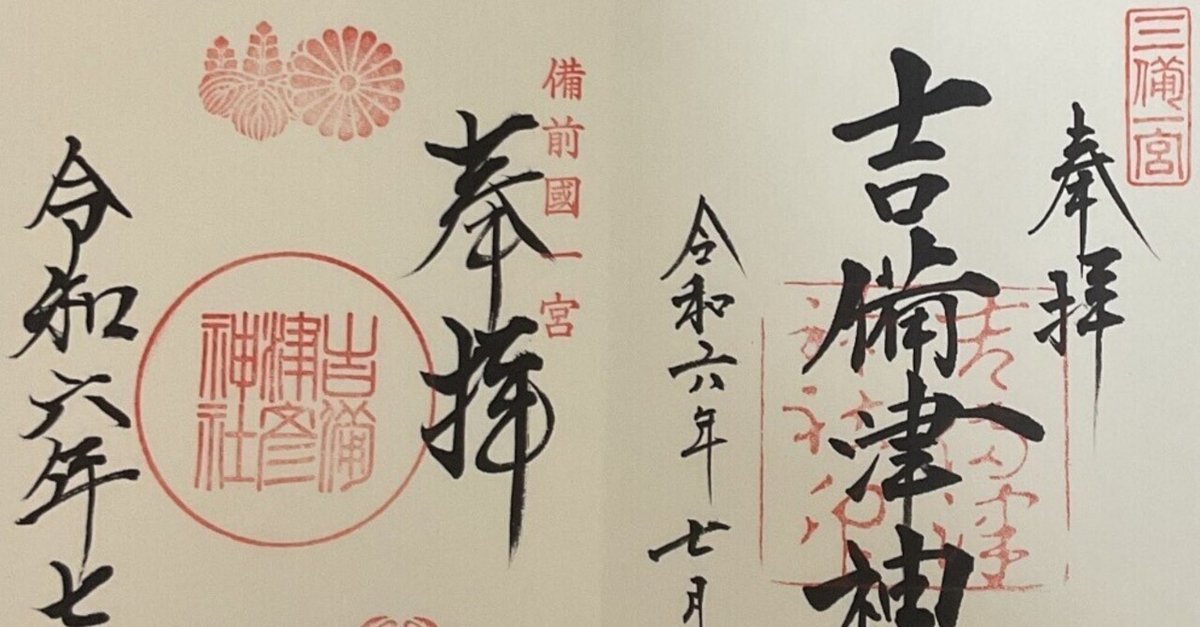 三備一宮
奉拝
吉備津神
令和六年七月
備前國一宮
奉拝
吉備
津彦
神社
令和六年七